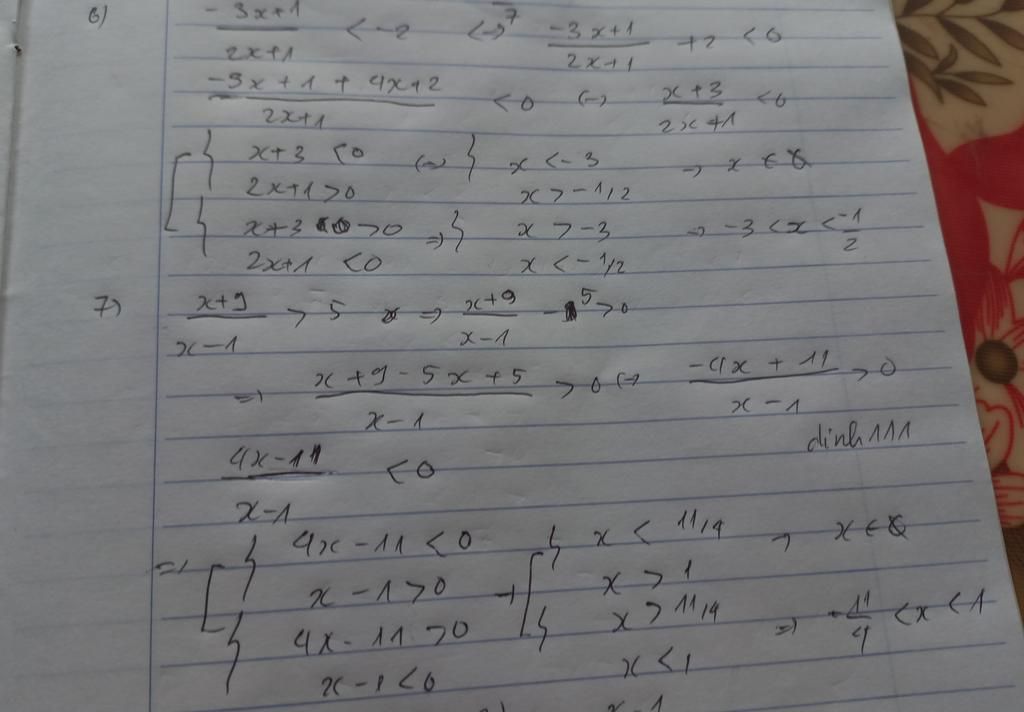 6) (-3x+1)/(2x+1) < -2 <=> (-3x+1)/(2x+1) + 2 < 0
(-3x+1+4x+2)/(2x+1) < 0 <=> (x+3)/(2x+1) < 0
[ { x+3 < 0 <=> { x < -3 → x ∈ ∅
2x+1 > 0 x > -1/2
{ x+3 > 0 => { x > -3 => -3 < x < -1/2
2x+1 < 0 x < -1/2
7) (x+9)/(x-1) > 5 => (x+9)/(x-1) - 5 > 0
=> (x+9-5x+5)/(x-1) > 0 <=> (-4x+11)/(x-1) > 0
dinh111
(4x-11)/(x-1) < 0
=> [ { 4x-11 < 0 → [ { x < 11/4 → x ∈ ∅
x-1 > 0 x > 1
{ 4x-11 > 0 { x > 11/4 => -11/4 < x < 1
x-1 < 0 x < 1
x-1